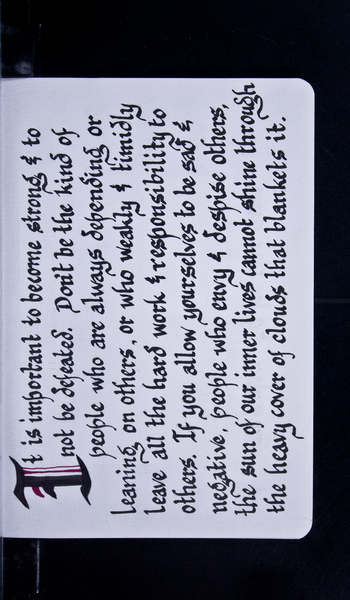 It is important to become strong & to
not be defeated. Dont be the kind of
people who are always depending or
leaning on others, or who weakly & timidly
leave all the hard work & responsibility to
others. If you allow yourselves to be sad &
negative, people who envy & despise others,
the sun of our inner lives cannot shine through
the heavy cover of clouds that blankets it.